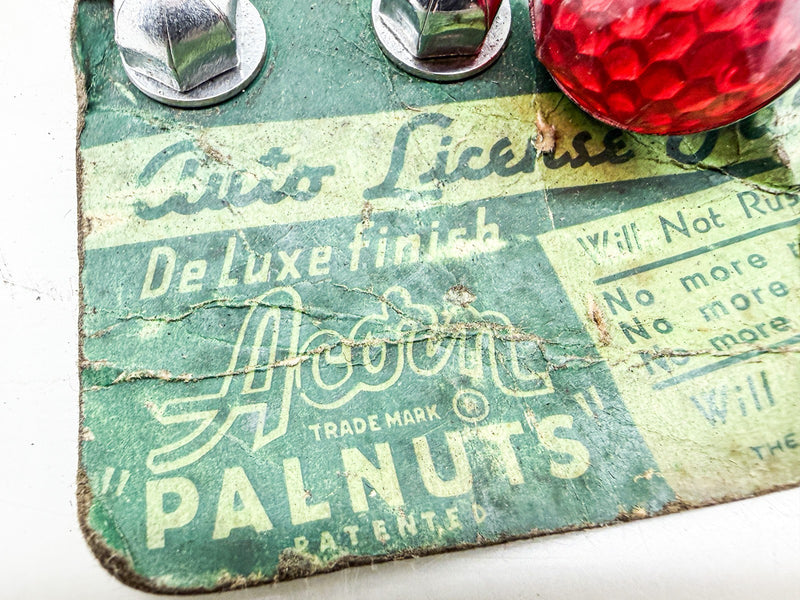 Auto License
DeLuxe finish
Acorn
TRADE MARK
"PALNUTS"
PATENTED
Will Not Rus
No more
No more
No more
Will
THE